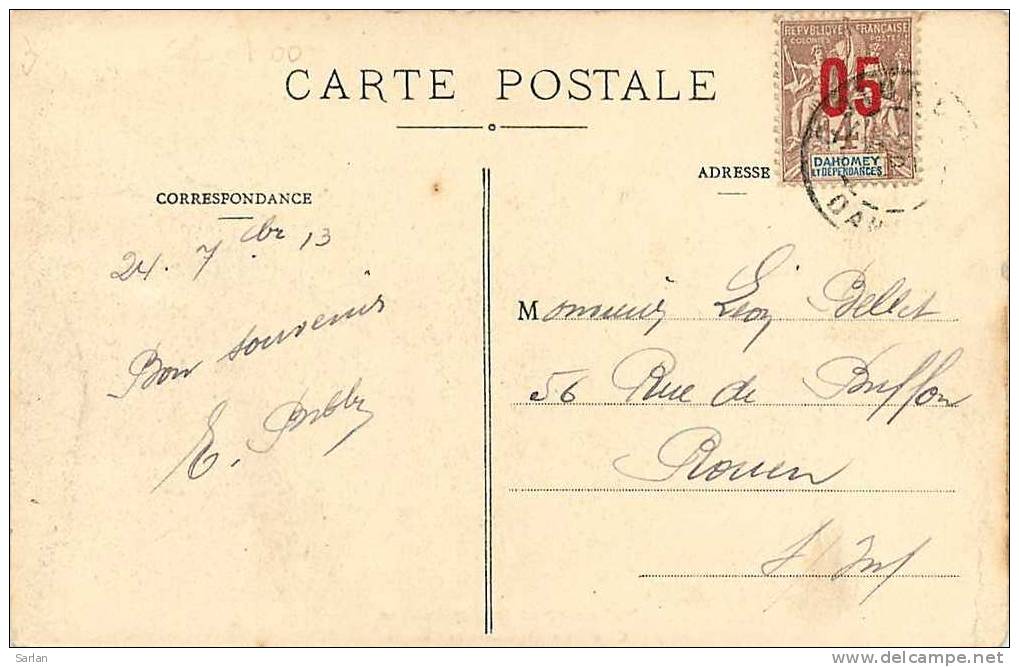 CARTE POSTALE
REPVBLIQVE FRANÇAISE
COLONIES POSTES
05
4
DAHOMEY
ET DÉPENDANCES
DAH
ADRESSE
CORRESPONDANCE
24. 7bre 13
Bon souvenir
E.
Monsieur Léon Bellet
56 Rue de Buffon
Rouen
S/ Inf
Sarlan
delcampe.net